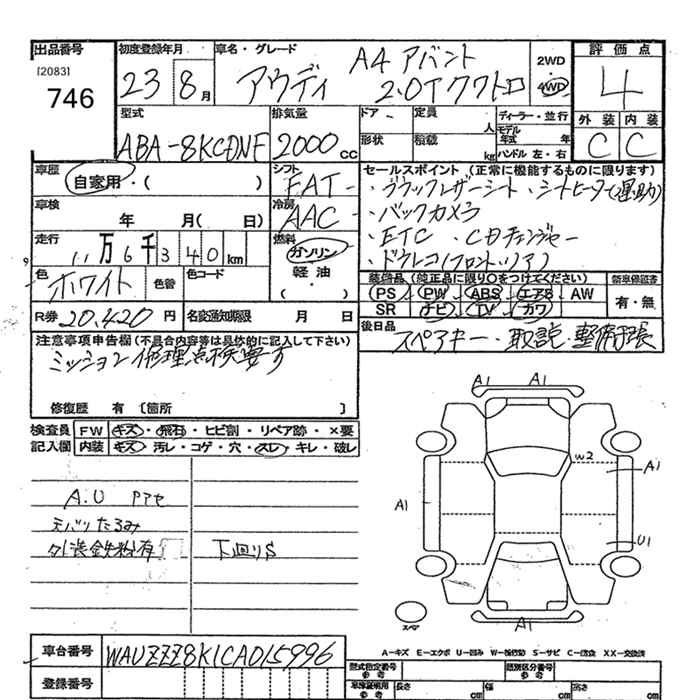 出品番号 初度登録年月 車名・グレード 2WD 評価点
[2083] 746 23 8月 アウディ A4 アバント 4WD 4
2.0T クワトロ
型式 排気量 ドア 定員 人 ディーラー・並行 外装 内装
ABA-8KCDNF 2000cc 形状 積載 kg モデル年式 年 C C
ハンドル 左・右
車歴 自家用・( ) シフト FAT セールスポイント (正常に機能するものに限ります)
・ブラックレザーシート ・シートヒーター(運助)
車検 年 月( 日) 冷房 AAC ・バックカメラ
・ETC ・CDチェンジャー
走行 11万6千340km 燃料 ガソリン ・ドラレコ(フロント・リア)
色 ホワイト 色替 色コード 軽油 ( ・ ) 装備品 (純正品に限り○をつけてください) 新車保証書
PS PW ABS エアB AW 有・無
SR ナビ TV カワ
R券 20,420円 名変通知期限 月 日 後日品 スペアキー・取説・整備手帳
注意事項申告欄 (不具合内容等は具体的に記入して下さい)
ミッション修理点検要す
修復歴 有 〔箇所 〕
検査員 FW キズ・飛石・ヒビ割・リペア跡・×要
記入欄 内装 キズ・汚レ・コゲ・穴・スレ・キレ・破レ
A1 A1
W2 A1
A1
A.U Pアセ
天バリたるみ U1
外装鉄粉有 下回りS
スペア A1
A-キズ E-エクボ U-凹み W-補修跡 S-サビ C-腐食 XX-交換済
車台番号 WAUZZZ8K1CA015996
型式指定番号 参考 類別区分番号 参考
登録番号 車庫証明用 参考 長さ cm 幅 cm 高さ cm